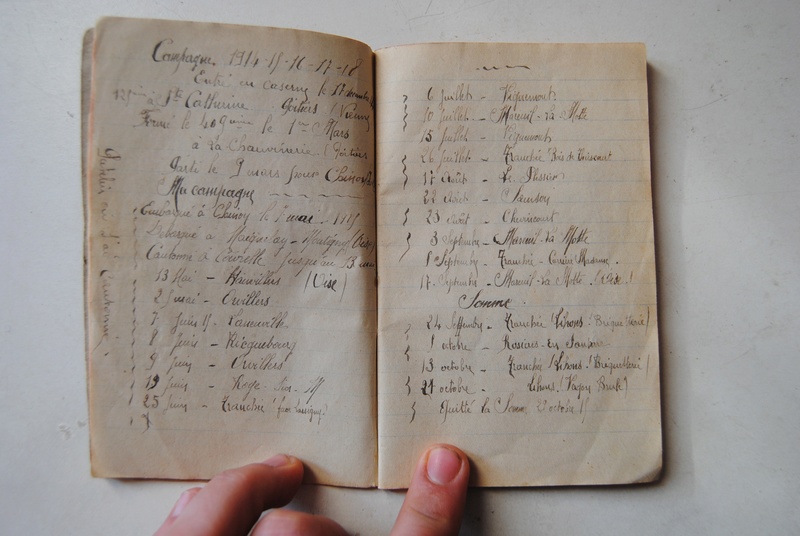 Campagne 1914-15-16-17-18
Entré en caserne le 17
à Ste Catherine Poitiers (Vienne)
Formé le 409ème le 1er Mars
à la Chauvinerie (Poitiers
Parti le 9 mars pour Chinon
Ma campagne
Embarqué à Chinon le mai 1915
Débarqué à Maignelay-Montigny (Oise)
Cantonné à jusqu'au 13 mai
13 Mai - Hainvillers (Oise)
2 mai - Orvillers
7 Juin 15 -
8 Juin - Ricquebourg
9 Juin - Orvillers
19 Juin - Roye-sur-M
25 Juin - Tranchée (face
6 Juillet - Viquemont
10 Juillet - Mareuil-La Motte
15 Juillet - Viquemont
26 Juillet - Tranchée Bois de
17 Août - Le Plessier
22 Août -
23 Août - Chevincourt
3 Septembre - Mareuil-La Motte
8 Septembre - Tranchée -
17 Septembre - Mareuil-La Motte (Oise)
Somme.
24 Septembre - Tranchée (Lihons) (
1 octobre - Rosières-en-Santerre
13 octobre - Tranchée (Lihons) (Briqueterie)
21 octobre - Lihons (
Quitté la Somme octobre 15